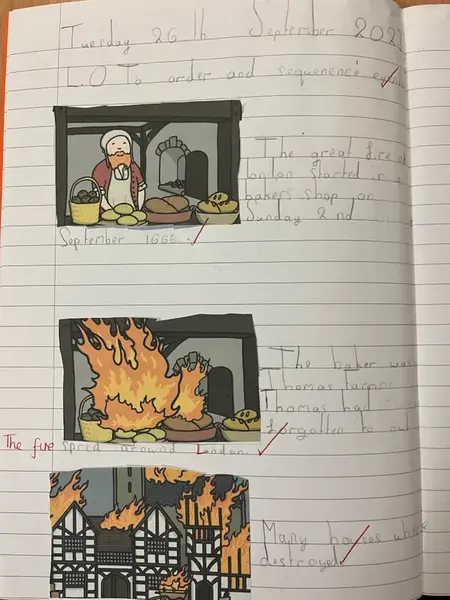 Tuesday 26 th September 202
L.O To order and sequenence
The great fire of
london started in a
bakers shop on
Sunday 2nd
September 1666.
The baker was
Thomas
Thomas had
forgotten to
The fire spred around London
Many houses
destroyed